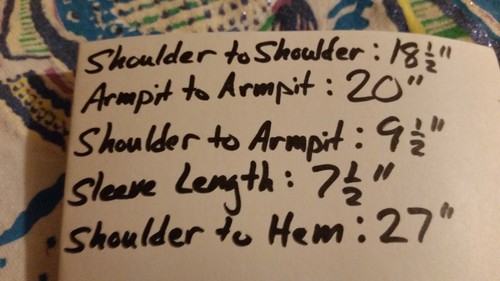 Shoulder to Shoulder: 18 1/2"
Armpit to Armpit: 20"
Shoulder to Armpit: 9 1/2"
Sleeve Length: 7 1/2"
Shoulder to Hem: 27"